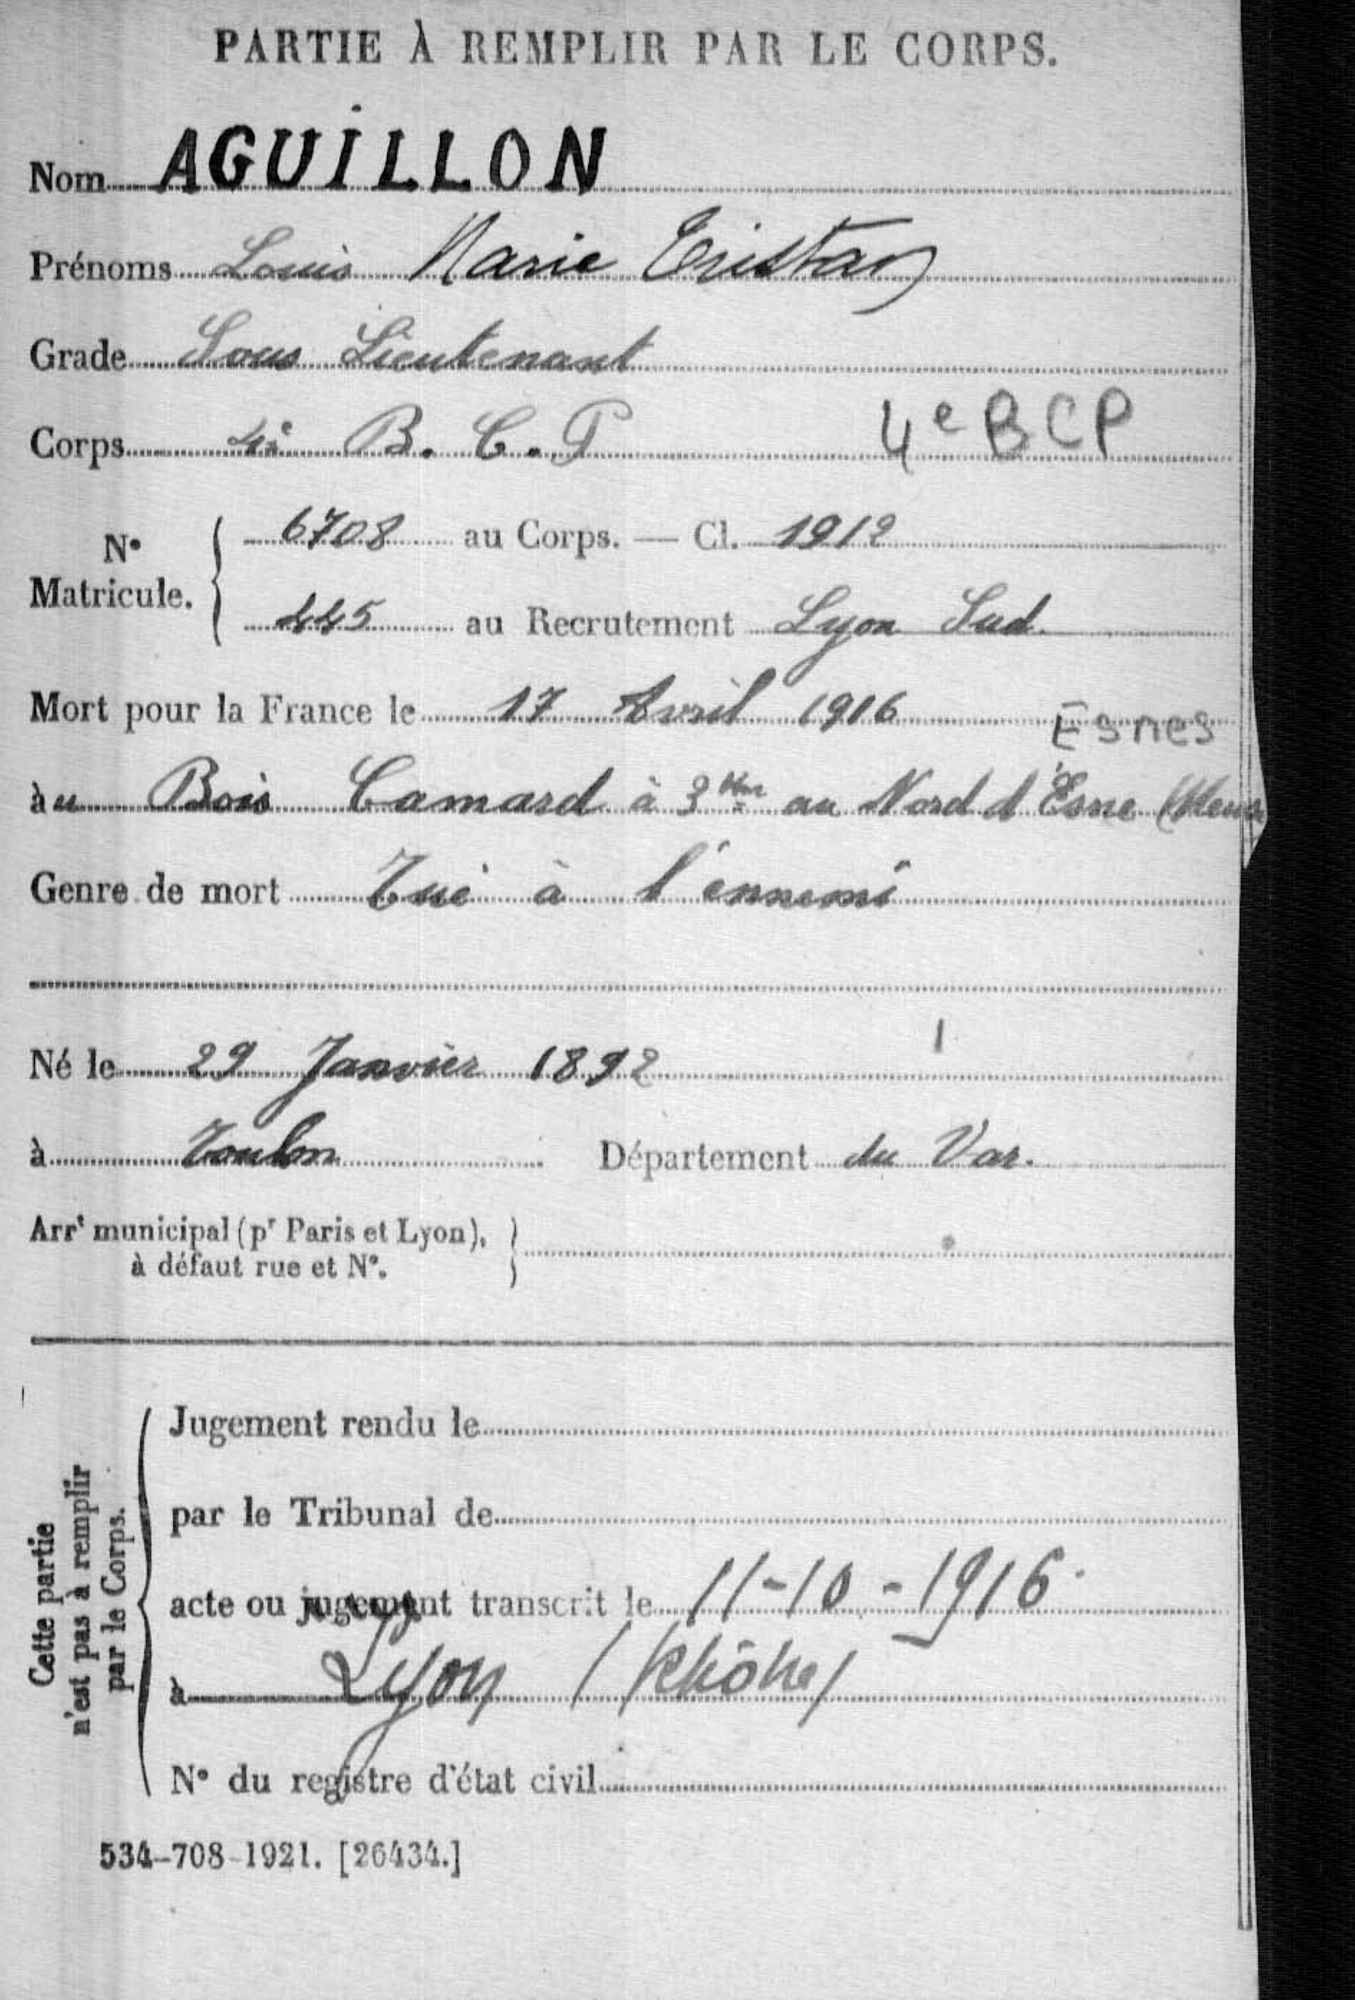 PARTIE À REMPLIR PAR LE CORPS.
Nom AGUILLON
Prénoms Louis Marie Tristan
Grade Sous Lieutenant
Corps 4è B. C. P 4e BCP
N° Matricule. 6708 au Corps. — Cl. 1912
445 au Recrutement Lyon Sud.
Mort pour la France le 17 Avril 1916 Esnes
àu Bois Camard à 3 Km au Nord d'Esne (Meuse
Genre de mort Tué à l'ennemi
Né le 29 Janvier 1892
à Toulon Département du Var.
Arrt municipal (pr Paris et Lyon),
à défaut rue et N°.
Cette partie
n'est pas à remplir
par le Corps.
Jugement rendu le
par le Tribunal de
acte ou jugement transcrit le 11-10-1916.
à Lyon (Rhône)
N° du registre d'état civil
534-708-1921. [26434.]